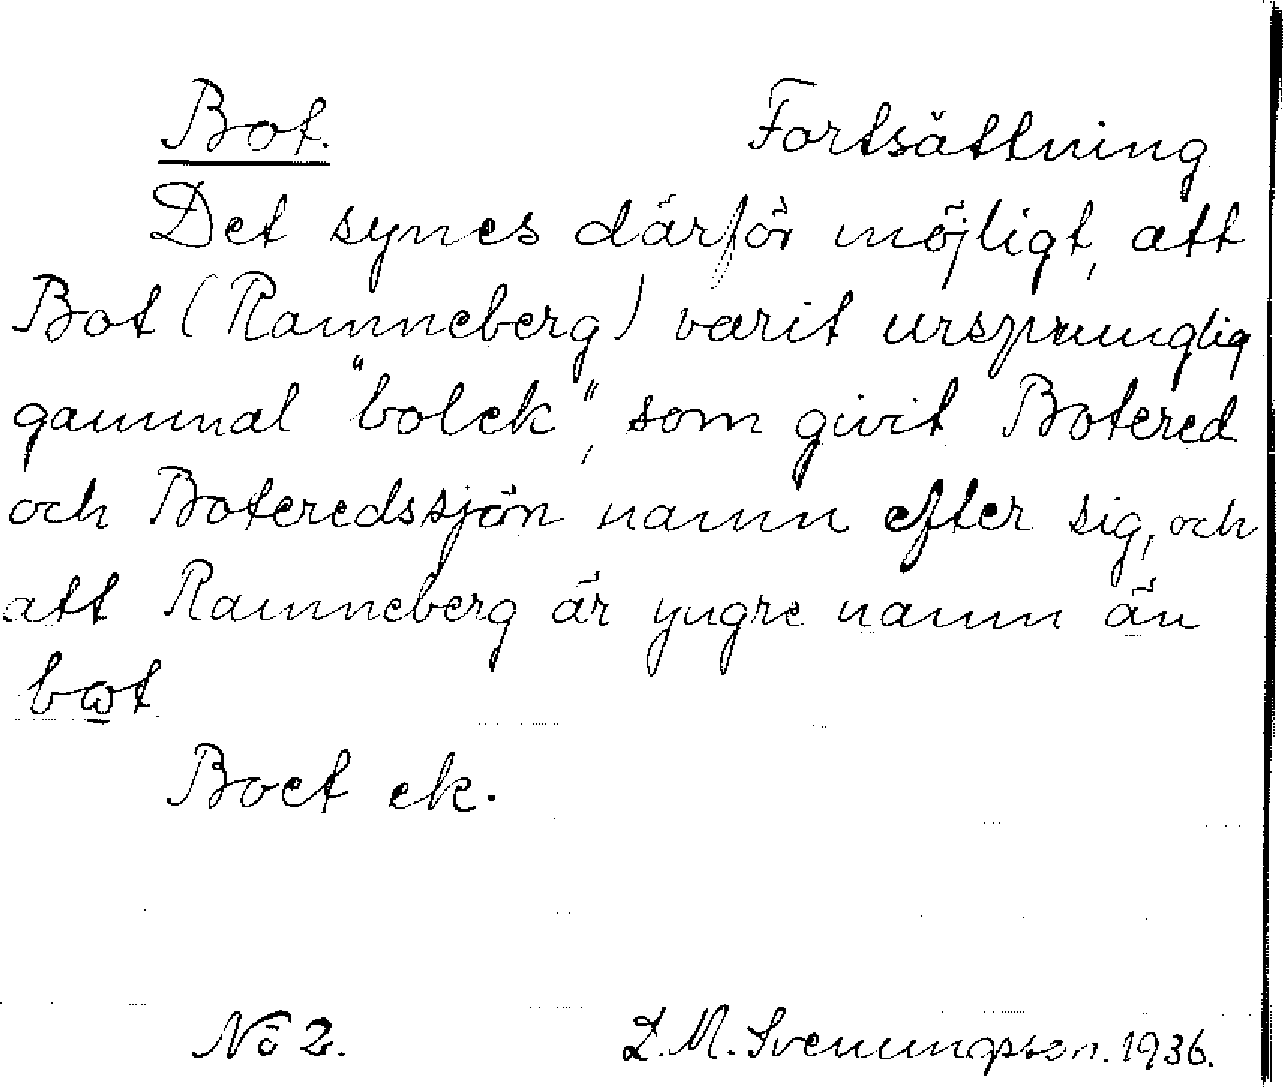 Bot. Fortsättning
Det synes därför möjligt, att
Bot (Ramneberg) varit ursprunglig
gammal "bolek", som givit Botered
och Boteredssjön namn efter sig, och
att Ramneberg är yngre namn än
bɷt
Boet ek.
No 2. L. M. Svenungsson. 1936.